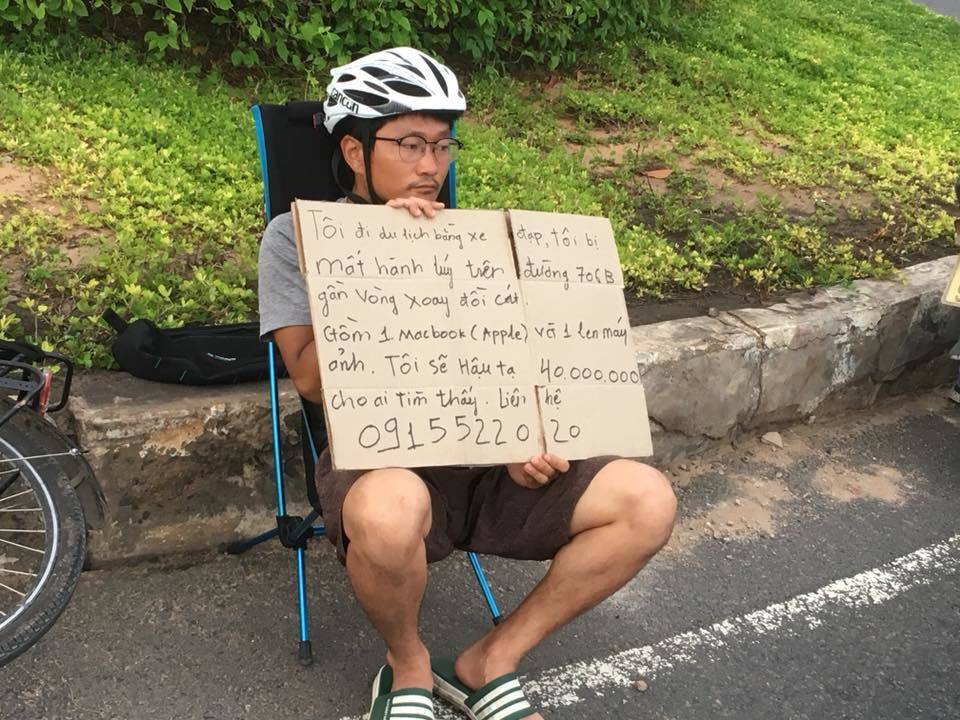 cancun
Tôi đi du lịch bằng xe đạp, tôi bị
mất hành lúy trên đường 706B
gần vòng xoay đồi cát.
Gồm 1 Macbook (Apple) và 1 len máy
ảnh. Tôi sẽ Hậu tạ 40.000.000
cho ai tìm thấy. Liên hệ
0915522020